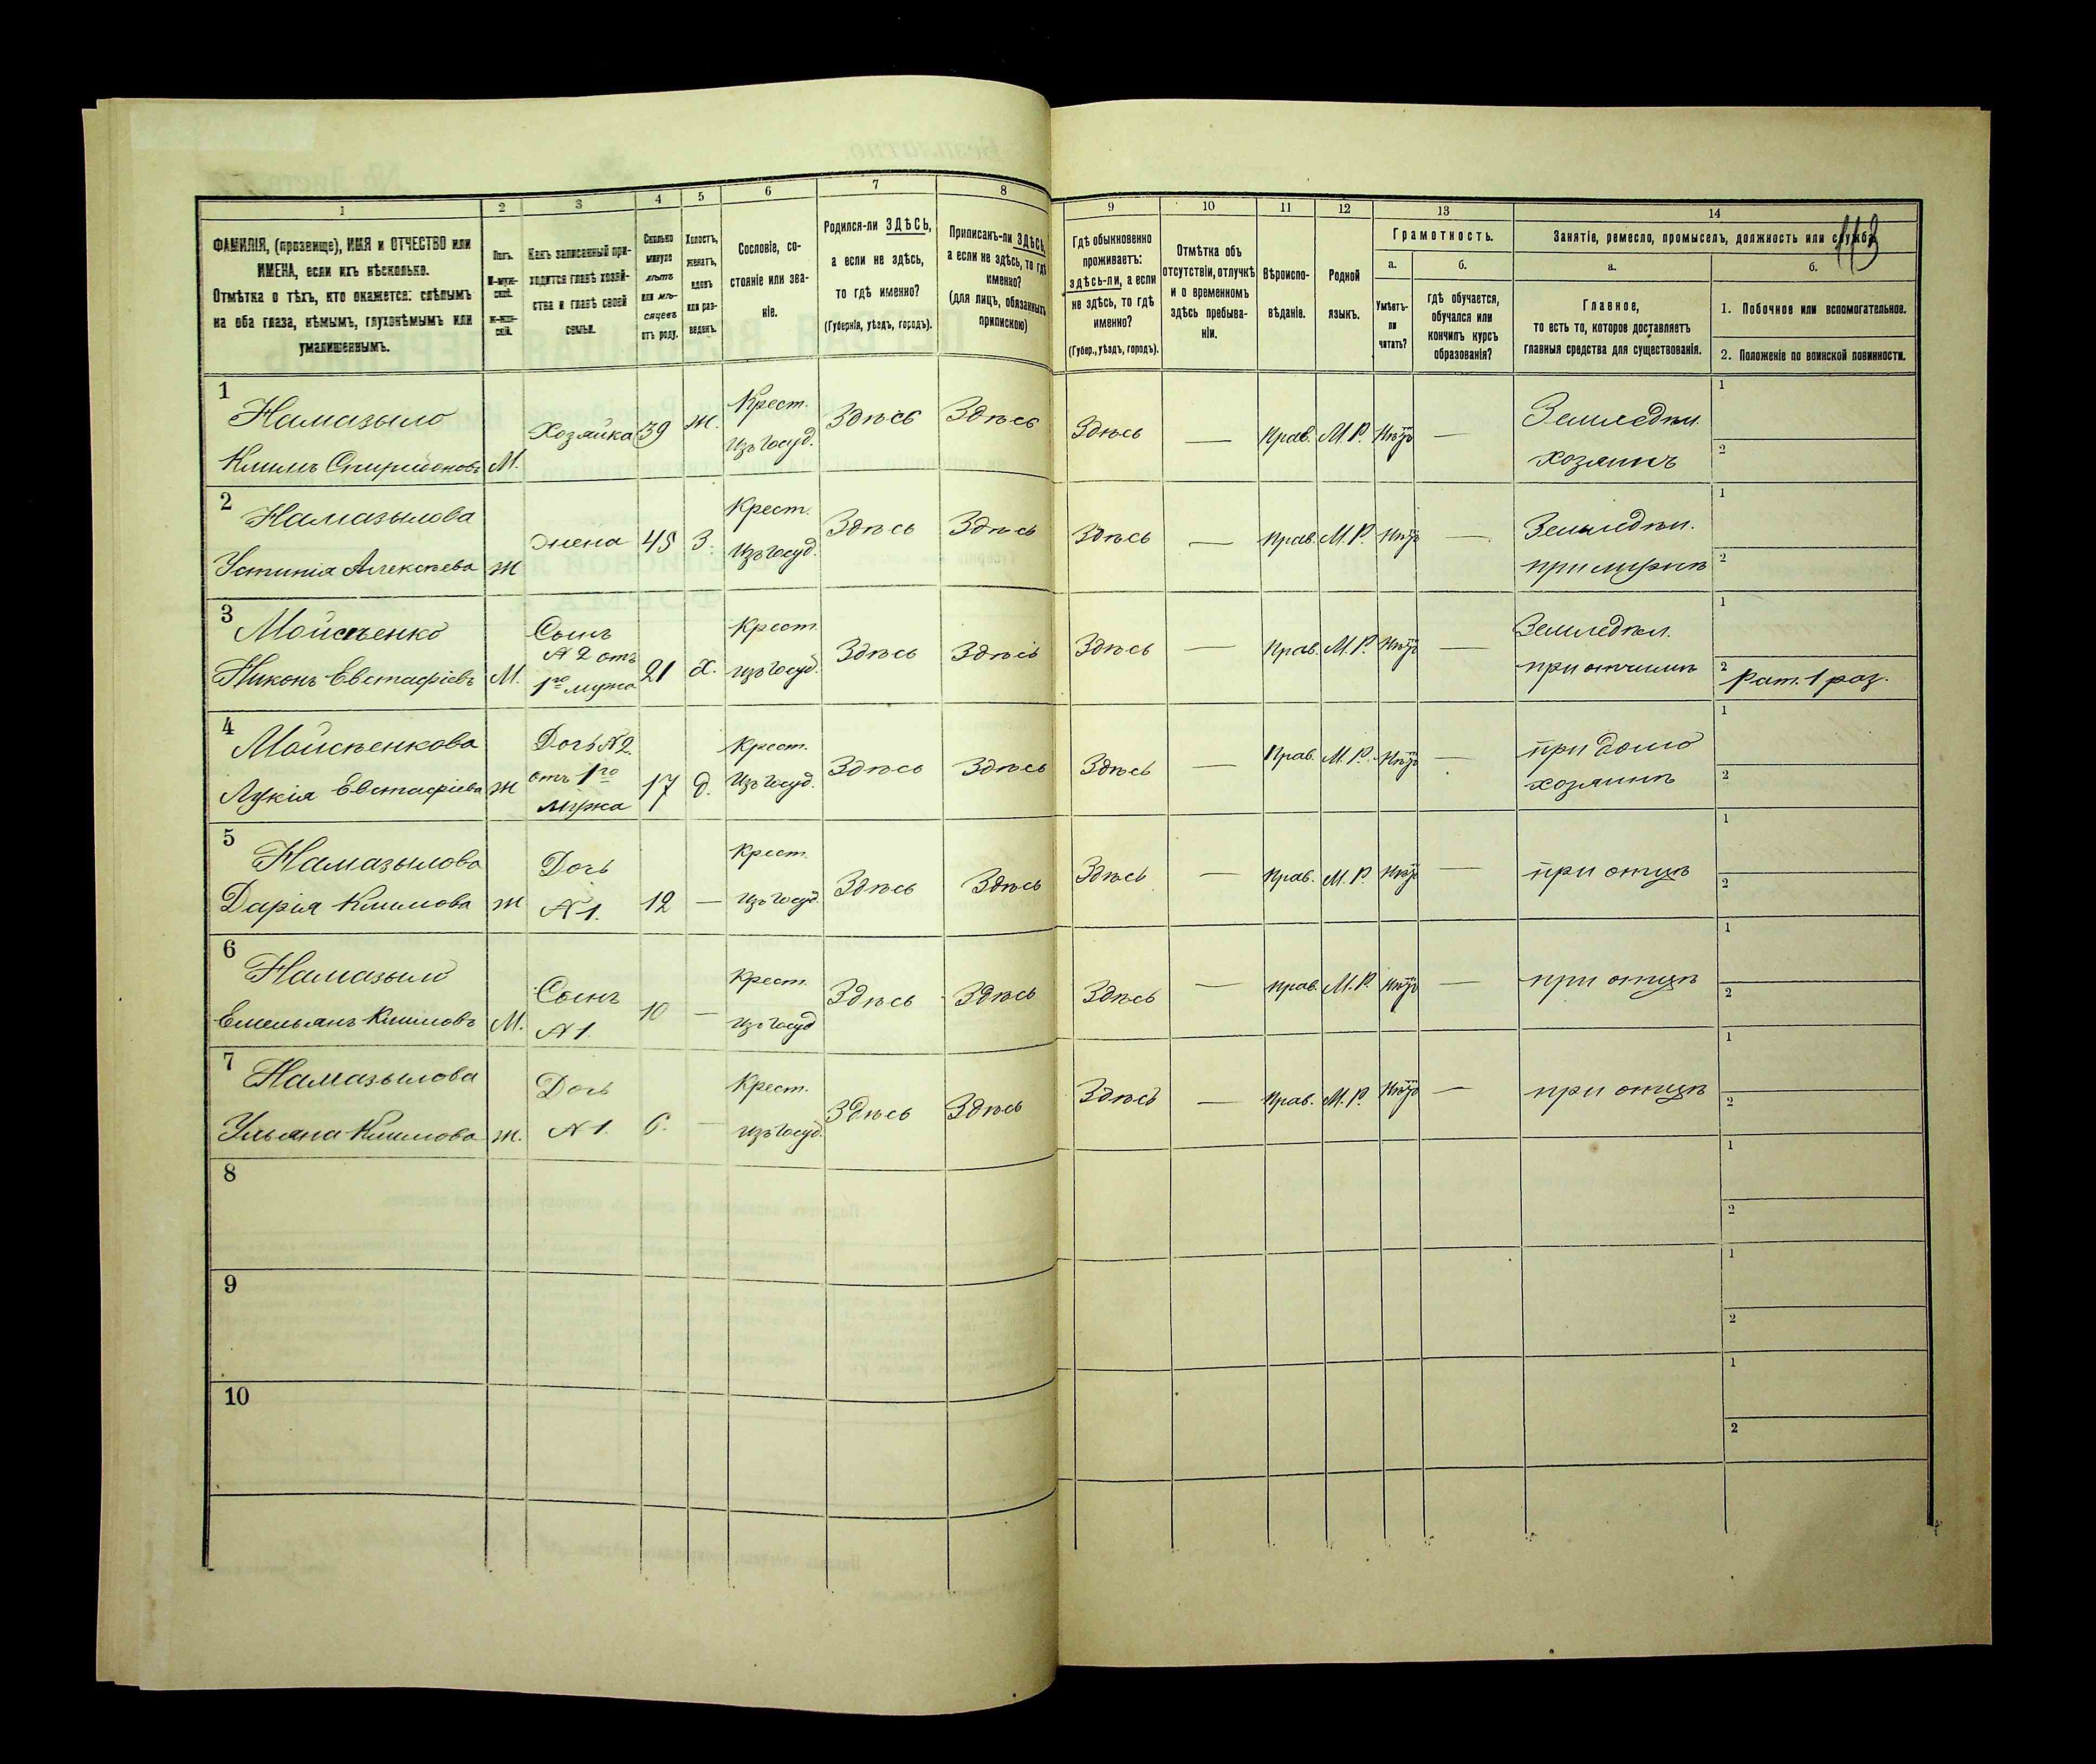 113
1
2
3
4
5
6
7
8
9
10
11
12
13
14
ФАМИЛІЯ, (прозвище), ИМЯ и ОТЧЕСТВО или
ИМЕНА, если ихъ нѣсколько.
Отмѣтка о тѣхъ, кто окажется: слѣпымъ
на оба глаза, нѣмымъ, глухонѣмымъ или
умалишеннымъ.
Полъ.
М-муж-
ской.
ж-жен-
скій.
Какъ записанный при-
ходится главѣ хозяй-
ства и главѣ своей
семьи.
Сколько
минуло
лѣтъ
или мѣ-
сяцевъ
отъ роду.
Холостъ,
женатъ,
вдовъ
или раз-
веденъ.
Сословіе, со-
стояніе или зва-
ніе.
Родился-ли ЗДѢСЬ,
а если не здѣсь,
то гдѣ именно?
(Губернія, уѣздъ, городъ).
Приписанъ-ли ЗДѢСЬ,
а если не здѣсь, то гдѣ
именно?
(для лицъ, обязанныхъ
припискою)
Гдѣ обыкновенно
проживаетъ:
здѣсь-ли, а если
не здѣсь, то гдѣ
именно?
(Губер., уѣздъ, городъ).
Отмѣтка объ
отсутствіи, отлучкѣ
и о временномъ
здѣсь пребыва-
ніи.
Вѣроиспо-
вѣданіе.
Родной
языкъ.
Грамотность.
а.
Умѣетъ-
ли
читать?
б.
гдѣ обучается,
обучался или
кончилъ курсъ
образованія?
Занятіе, ремесло, промыселъ, должность или служба.
а.
Главное,
то есть то, которое доставляетъ
главныя средства для существованія.
б.
1. Побочное или вспомогательное.
2. Положеніе по воинской повинности.
1
Намазыло
Климъ Спиридоновъ М.
Хозяйка 39 ж.
Крест.
Изъ Госуд.
Здѣсь Здѣсь Здѣсь — Прав. М. Р. Нѣтъ —
Земледѣл.
хозяинъ
1
2
2
Намазылова
Устинія Алексѣева Ж
жена 45 З.
Крест.
Изъ Госуд.
Здѣсь Здѣсь Здѣсь — Прав. М. Р. Нѣтъ —
Земледѣл.
при мужѣ
1
2
3
Мойсѣенко
Никонъ Евстафіевъ М.
Сынъ
№ 2 отъ
1го мужа
21 Х.
Крест.
Изъ Госуд.
Здѣсь Здѣсь Здѣсь — Прав. М. Р. Нѣтъ —
Земледѣл.
при отчимѣ
1
2 Рат. 1 раз.
4
Мойсѣенкова
Лукія Евстафіева Ж
Дочь № 2
отъ 1го
мужа
17 д.
Крест.
Изъ Госуд.
Здѣсь Здѣсь Здѣсь — Прав. М. Р. Нѣтъ —
при домѣ
хозяинѣ
1
2
5
Намазылова
Дарія Климова Ж
Дочь
№ 1.
12 —
Крест.
Изъ Госуд.
Здѣсь Здѣсь Здѣсь — Прав. М. Р. Нѣтъ —
при отцѣ
1
2
6
Намазыло
Емельянъ Климовъ М.
Сынъ
№ 1.
10 —
Крест.
Изъ Госуд.
Здѣсь Здѣсь Здѣсь — Прав. М. Р. Нѣтъ —
при отцѣ
1
2
7
Намазылова
Ульяна Климова Ж.
Дочь
№ 1.
6. —
Крест.
Изъ Госуд.
Здѣсь Здѣсь Здѣсь — Прав. М. Р. Нѣтъ —
при отцѣ
1
2
8
1
2
9
1
2
10
1
2